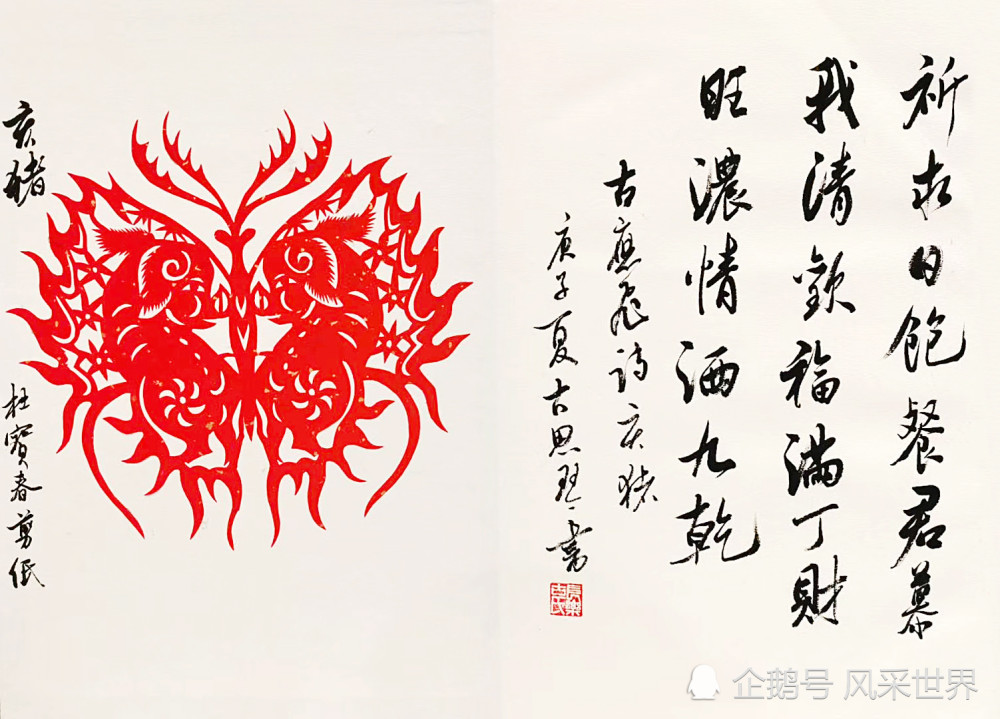 祈求日飽餐君慕
我清歡福滿丁財
旺濃情洒九乾
古應飛詩亥猪
庚子夏古思書
亥猪
杜寶春剪纸
企鹅号 风采世界